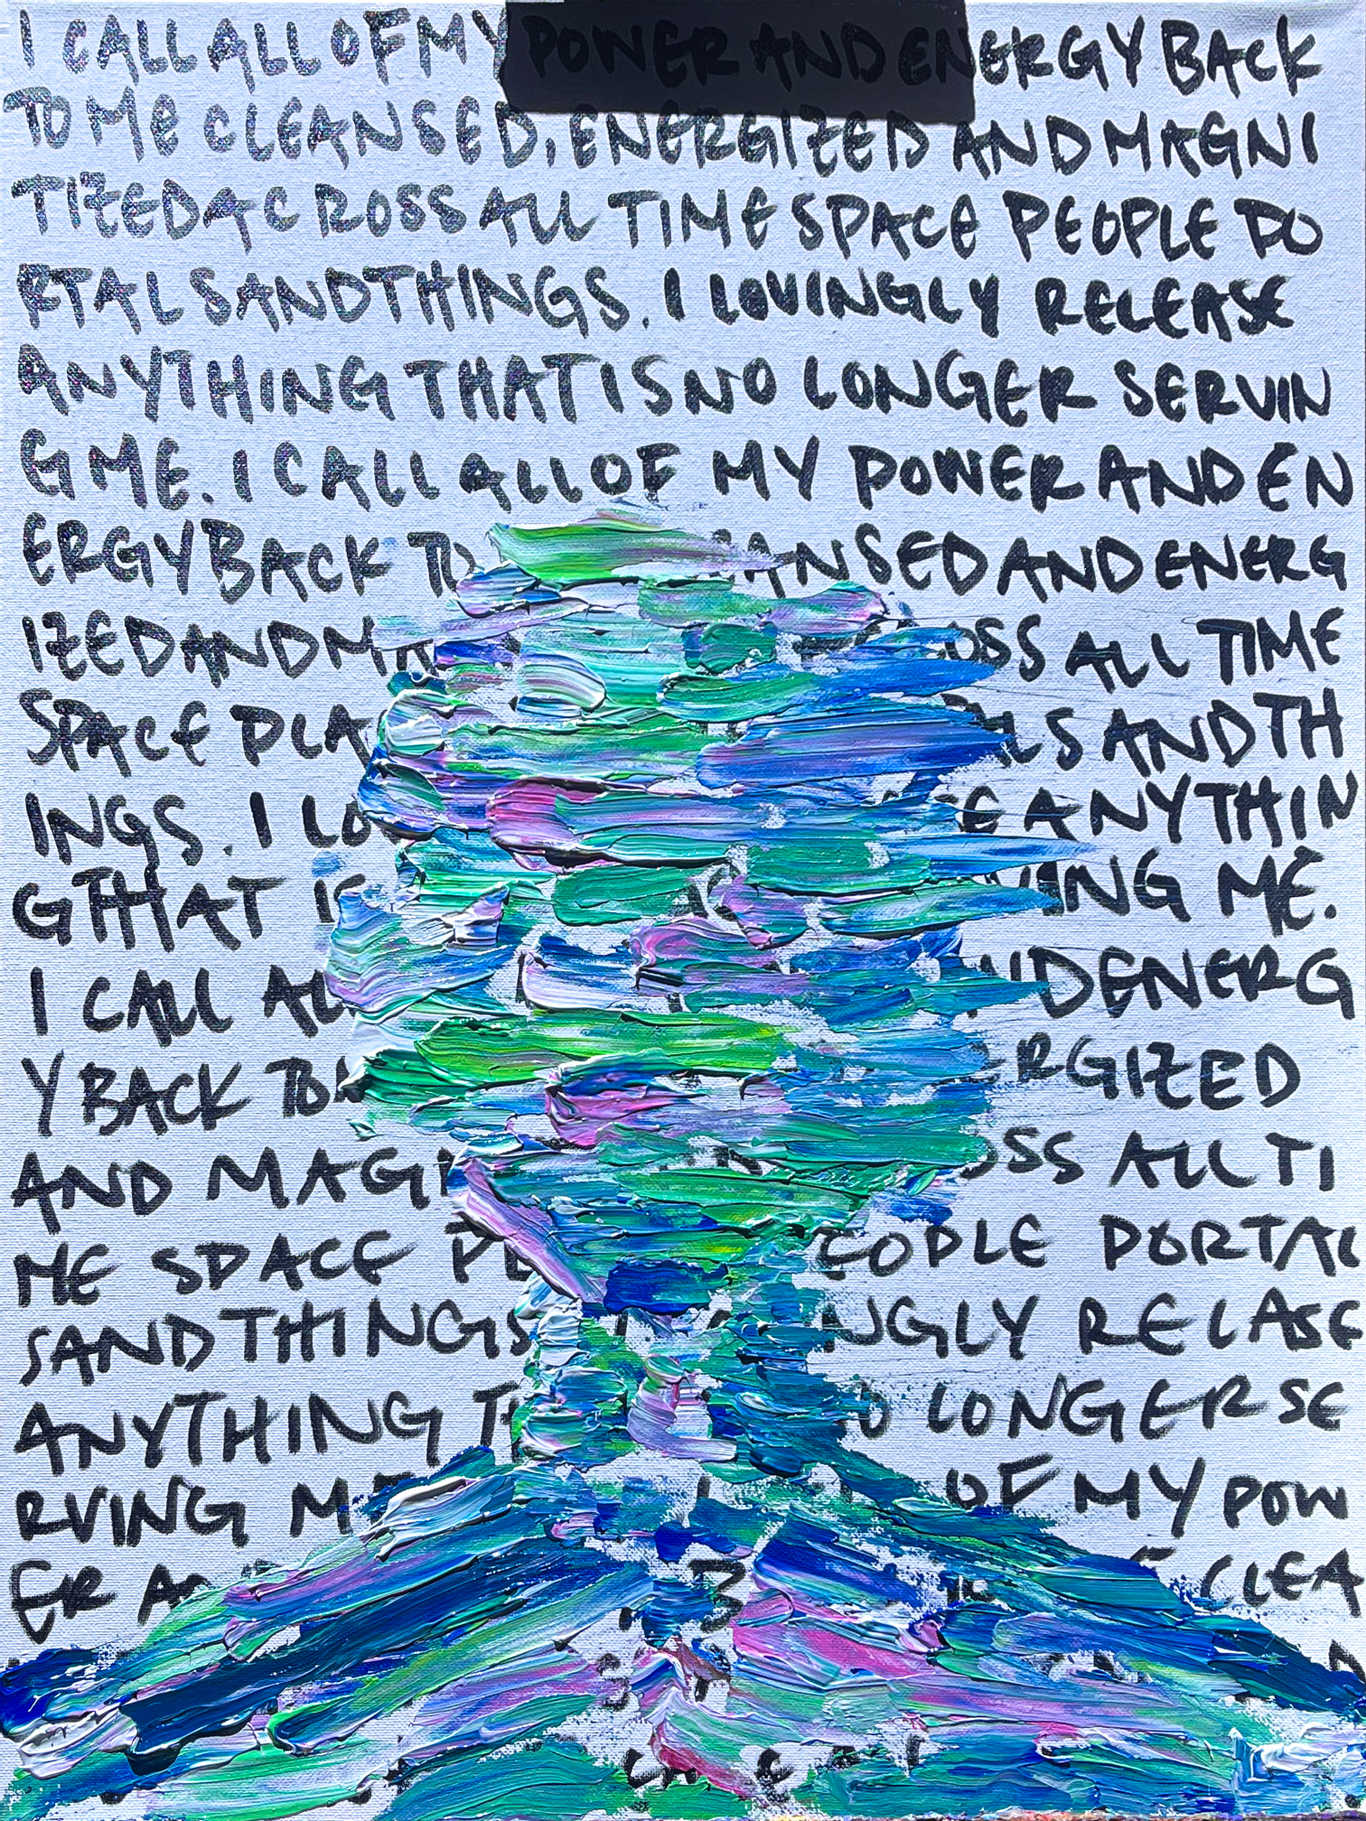 I CALL ALL OF MY POWER AND ENERGY BACK
TO ME CLEANSED, ENERGIZED AND MAGNI
TIZED ACROSS ALL TIME SPACE PEOPLE PO
RTALS AND THINGS. I LOVINGLY RELEASE
ANYTHING THAT IS NO LONGER SERVIN
G ME. I CALL ALL OF MY POWER AND EN
ERGY BACK TO ANSED AND ENERG
IZED AND MA OSS ALL TIME
SPACE PLA LS AND TH
INGS. I LO E ANYTHIN
G THAT IS ING ME.
I CALL AL ND ENERG
Y BACK TO ERGIZED
AND MAGN OSS ALL TI
ME SPACE PL EOPLE PORTAL
S AND THINGS NGLY RELASE
ANYTHING TH O LONGER SE
RVING ME OF MY POW
ER A B CLEA